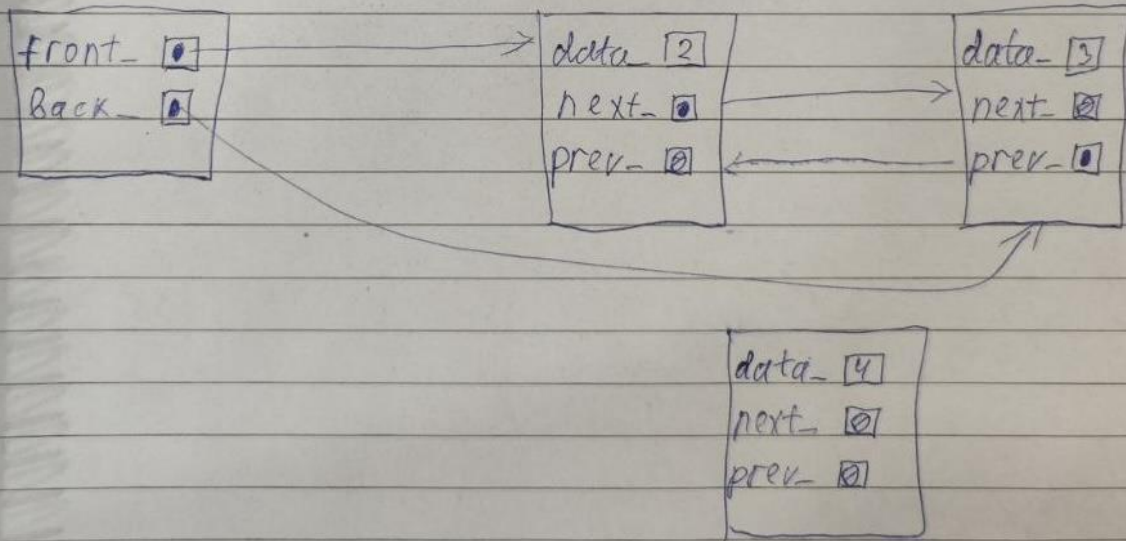 front_
Back_
data_ 2
next_
prev_ Ø
data_ 3
next_ Ø
prev_
data_ 4
next_ Ø
prev_ Ø